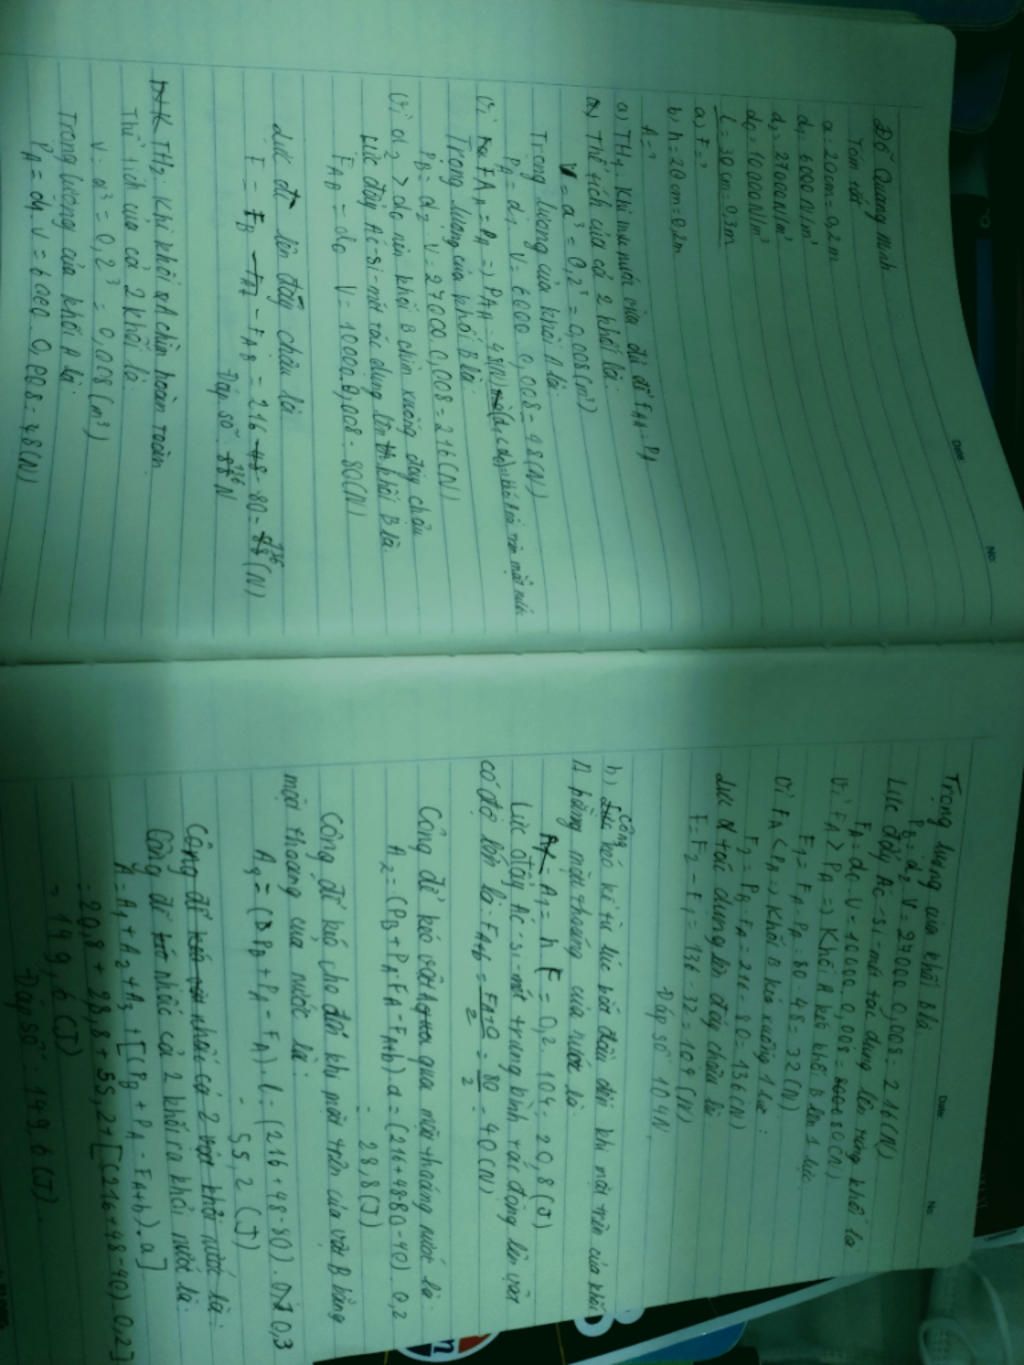 Date
No
Đỗ Quang Minh
Tóm tắt
a = 20cm = 0,2m
d₁ = 6000 N/m³
d₂ = 27000 N/m³
d₀ = 10000 N/m³
L = 30cm = 0,3m
a) F = ?
b) h = 20cm = 0,2m
A = ?
a) TH1: Khi mực nước vừa đủ để FAA = PA
Thể tích của cả 2 khối là:
V = a³ = 0,2³ = 0,008 (m³)
Trọng lượng của khối A là:
PA = d₁ V = 6000. 0,008 = 48 (N)
Vì FAA = PA => PAA = 48 (N)
Trọng lượng của khối B là:
PB = d₂ V = 27000. 0,008 = 216 (N)
Vì d₂ > d₀ nên khối B chìm xuống đáy chậu
Lực đẩy Ác-si-mét tác dụng lên khối B là:
FAB = d₀ V = 10000. 0,008 = 80 (N)
Lực đè lên đáy chậu là
F = PB - FAB = 216 - 80 = 136 (N)
Đáp số: 136 N
TH2: Khi khối A chìm hoàn toàn
Thể tích của cả 2 khối là:
V = a³ = 0,2³ = 0,008 (m³)
Trọng lượng của khối A là
PA = d₁ V = 6000. 0,008 = 48 (N)
Date
No
Trọng lượng của khối B là
PB = d₂ V = 27000. 0,008 = 216 (N)
Lực đẩy Ác-si-mét tác dụng lên từng khối là
FA = d₀ V = 10000. 0,008 = 80 (N)
Vì FA > PA => Khối A kéo khối B lên 1 lực
F₁ = FA - PA = 80 - 48 = 32 (N)
Vì FA < PB => Khối B kéo xuống 1 lực:
F₂ = PB - FA = 216 - 80 = 136 (N)
Lực tác dụng lên đáy chậu là
F = F₂ - F₁ = 136 - 32 = 104 (N)
Đáp số 104N
b) Công kéo kể từ lúc bắt đầu đến khi mặt trên của khối
A bằng mặt thoáng của nước là
A₁ = h F = 0,2. 104 = 20,8 (J)
Lực đẩy Ác-si-mét trung bình tác động lên vật
có độ lớn là: FAtb = FA+0/2 = 80/2 = 40 (N)
Công để kéo vật A qua mặt thoáng nước là:
A₂ = (PB + PA - FA - FAtb) a = (216+48-80-40) 0,2
= 28,8 (J)
Công để kéo cho đến khi mặt trên của vật B bằng
mặt thoáng của nước là:
A₃ = (PB + PA - FA). L = (216 + 48 - 80). 0,3
= 55,2 (J)
Công để nhấc cả 2 khối ra khỏi nước là:
A = A₁ + A₂ + A₃ + [(PB + PA - FAtb). a]
= 20,8 + 28,8 + 55,2 + [(216+48-40) 0,2]
= 149,6 (J)
Đáp số: 149,6 (J).